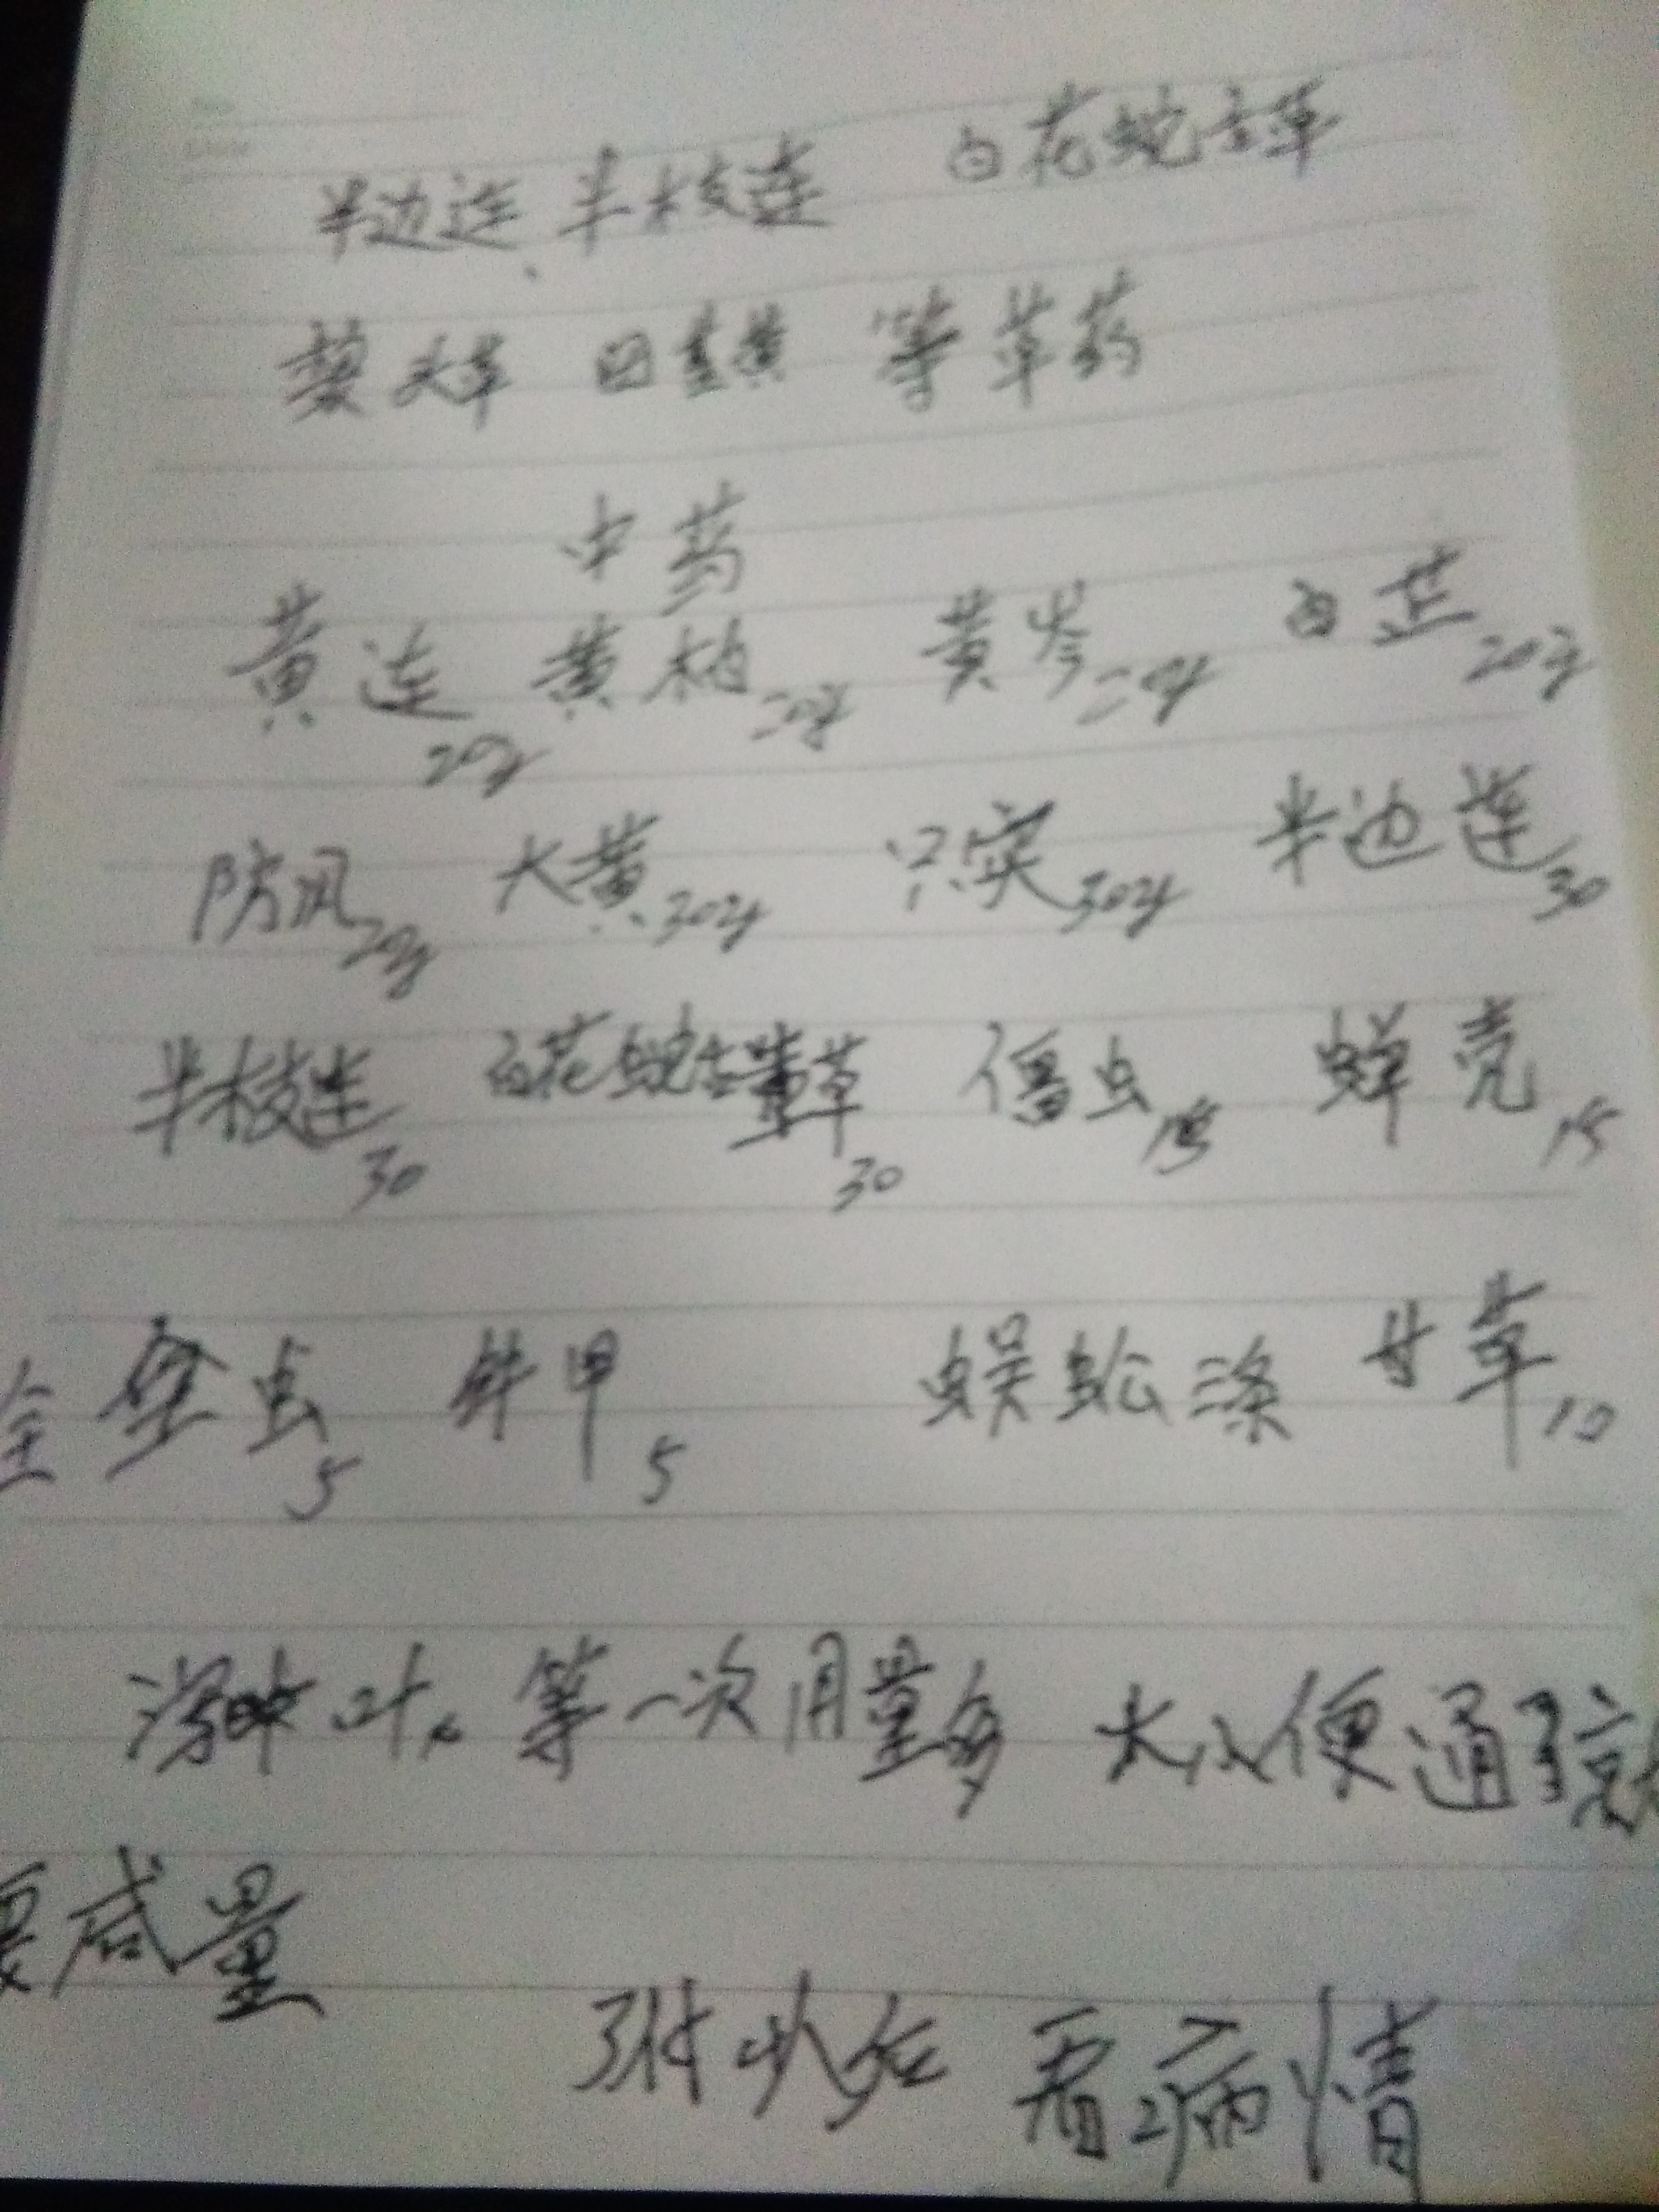 半边连、半枝莲 白花蛇舌草
草 等草药
中药
黄连20g 黄柏20g 黄芩20g 白芷20g
防风20g 大黄30g 只实30g 半边莲30
半枝莲30 白花蛇舌草30 虫15 蝉壳15
全 全虫5 甲5 蜈蚣三条 甘草10
叶 等一次用量多 大小便通了就
要减量
后 看病情